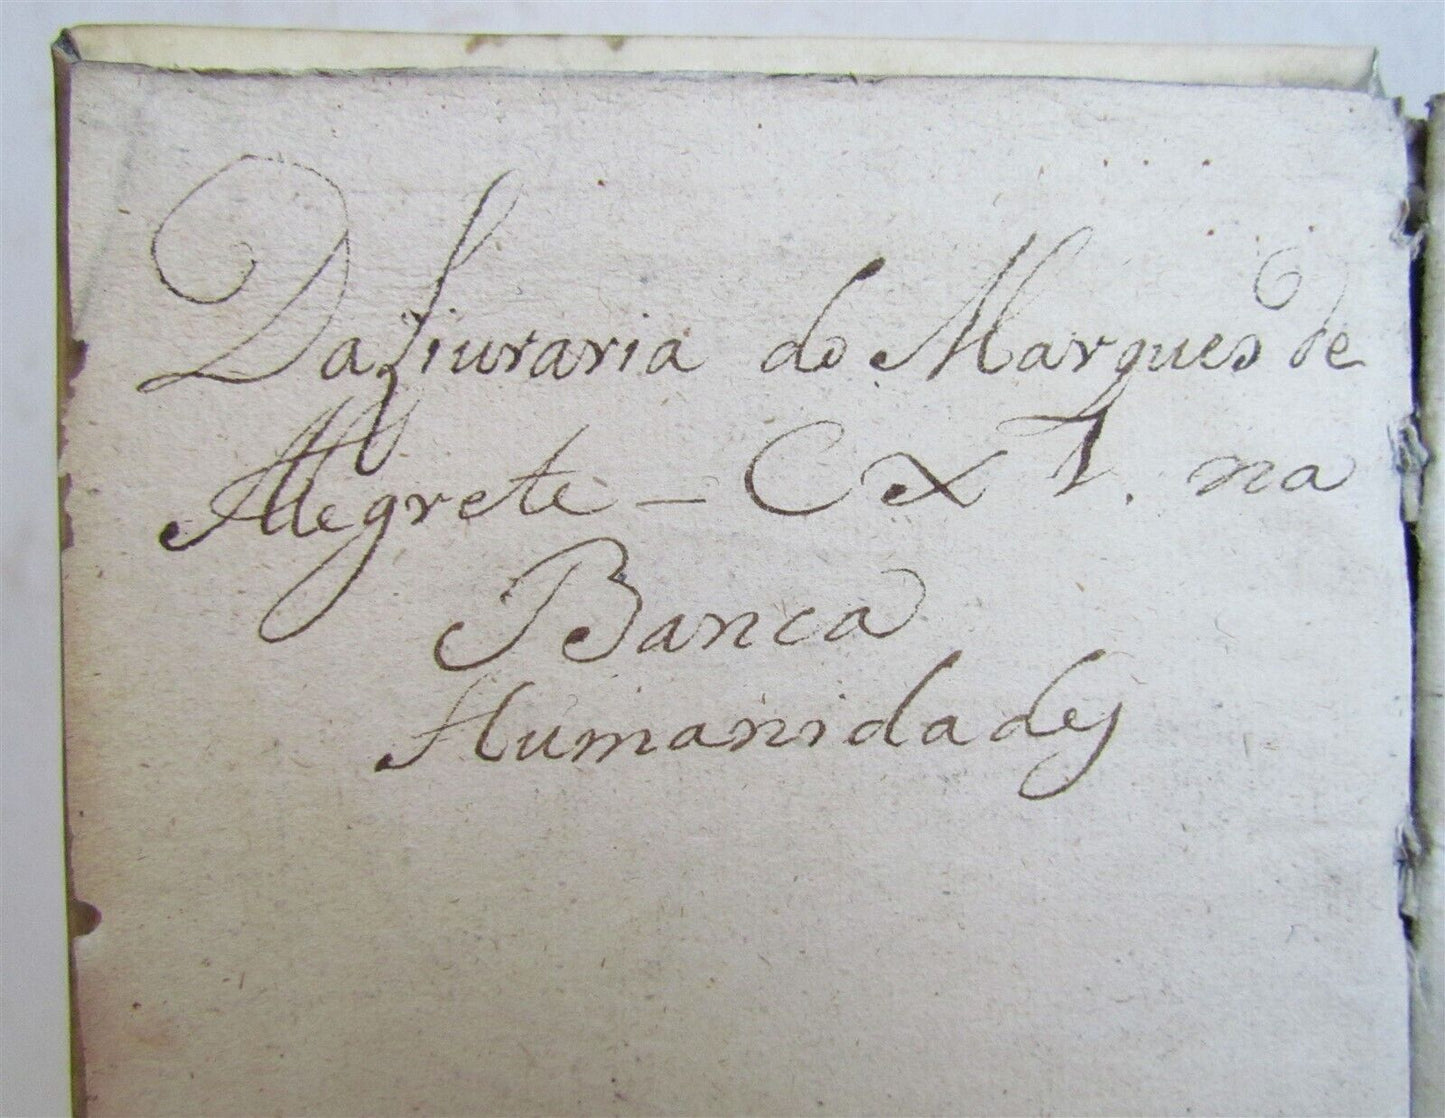 Da Liuraria do Marques de
Alegrete - Cx 1. na
Banca
Humanidades